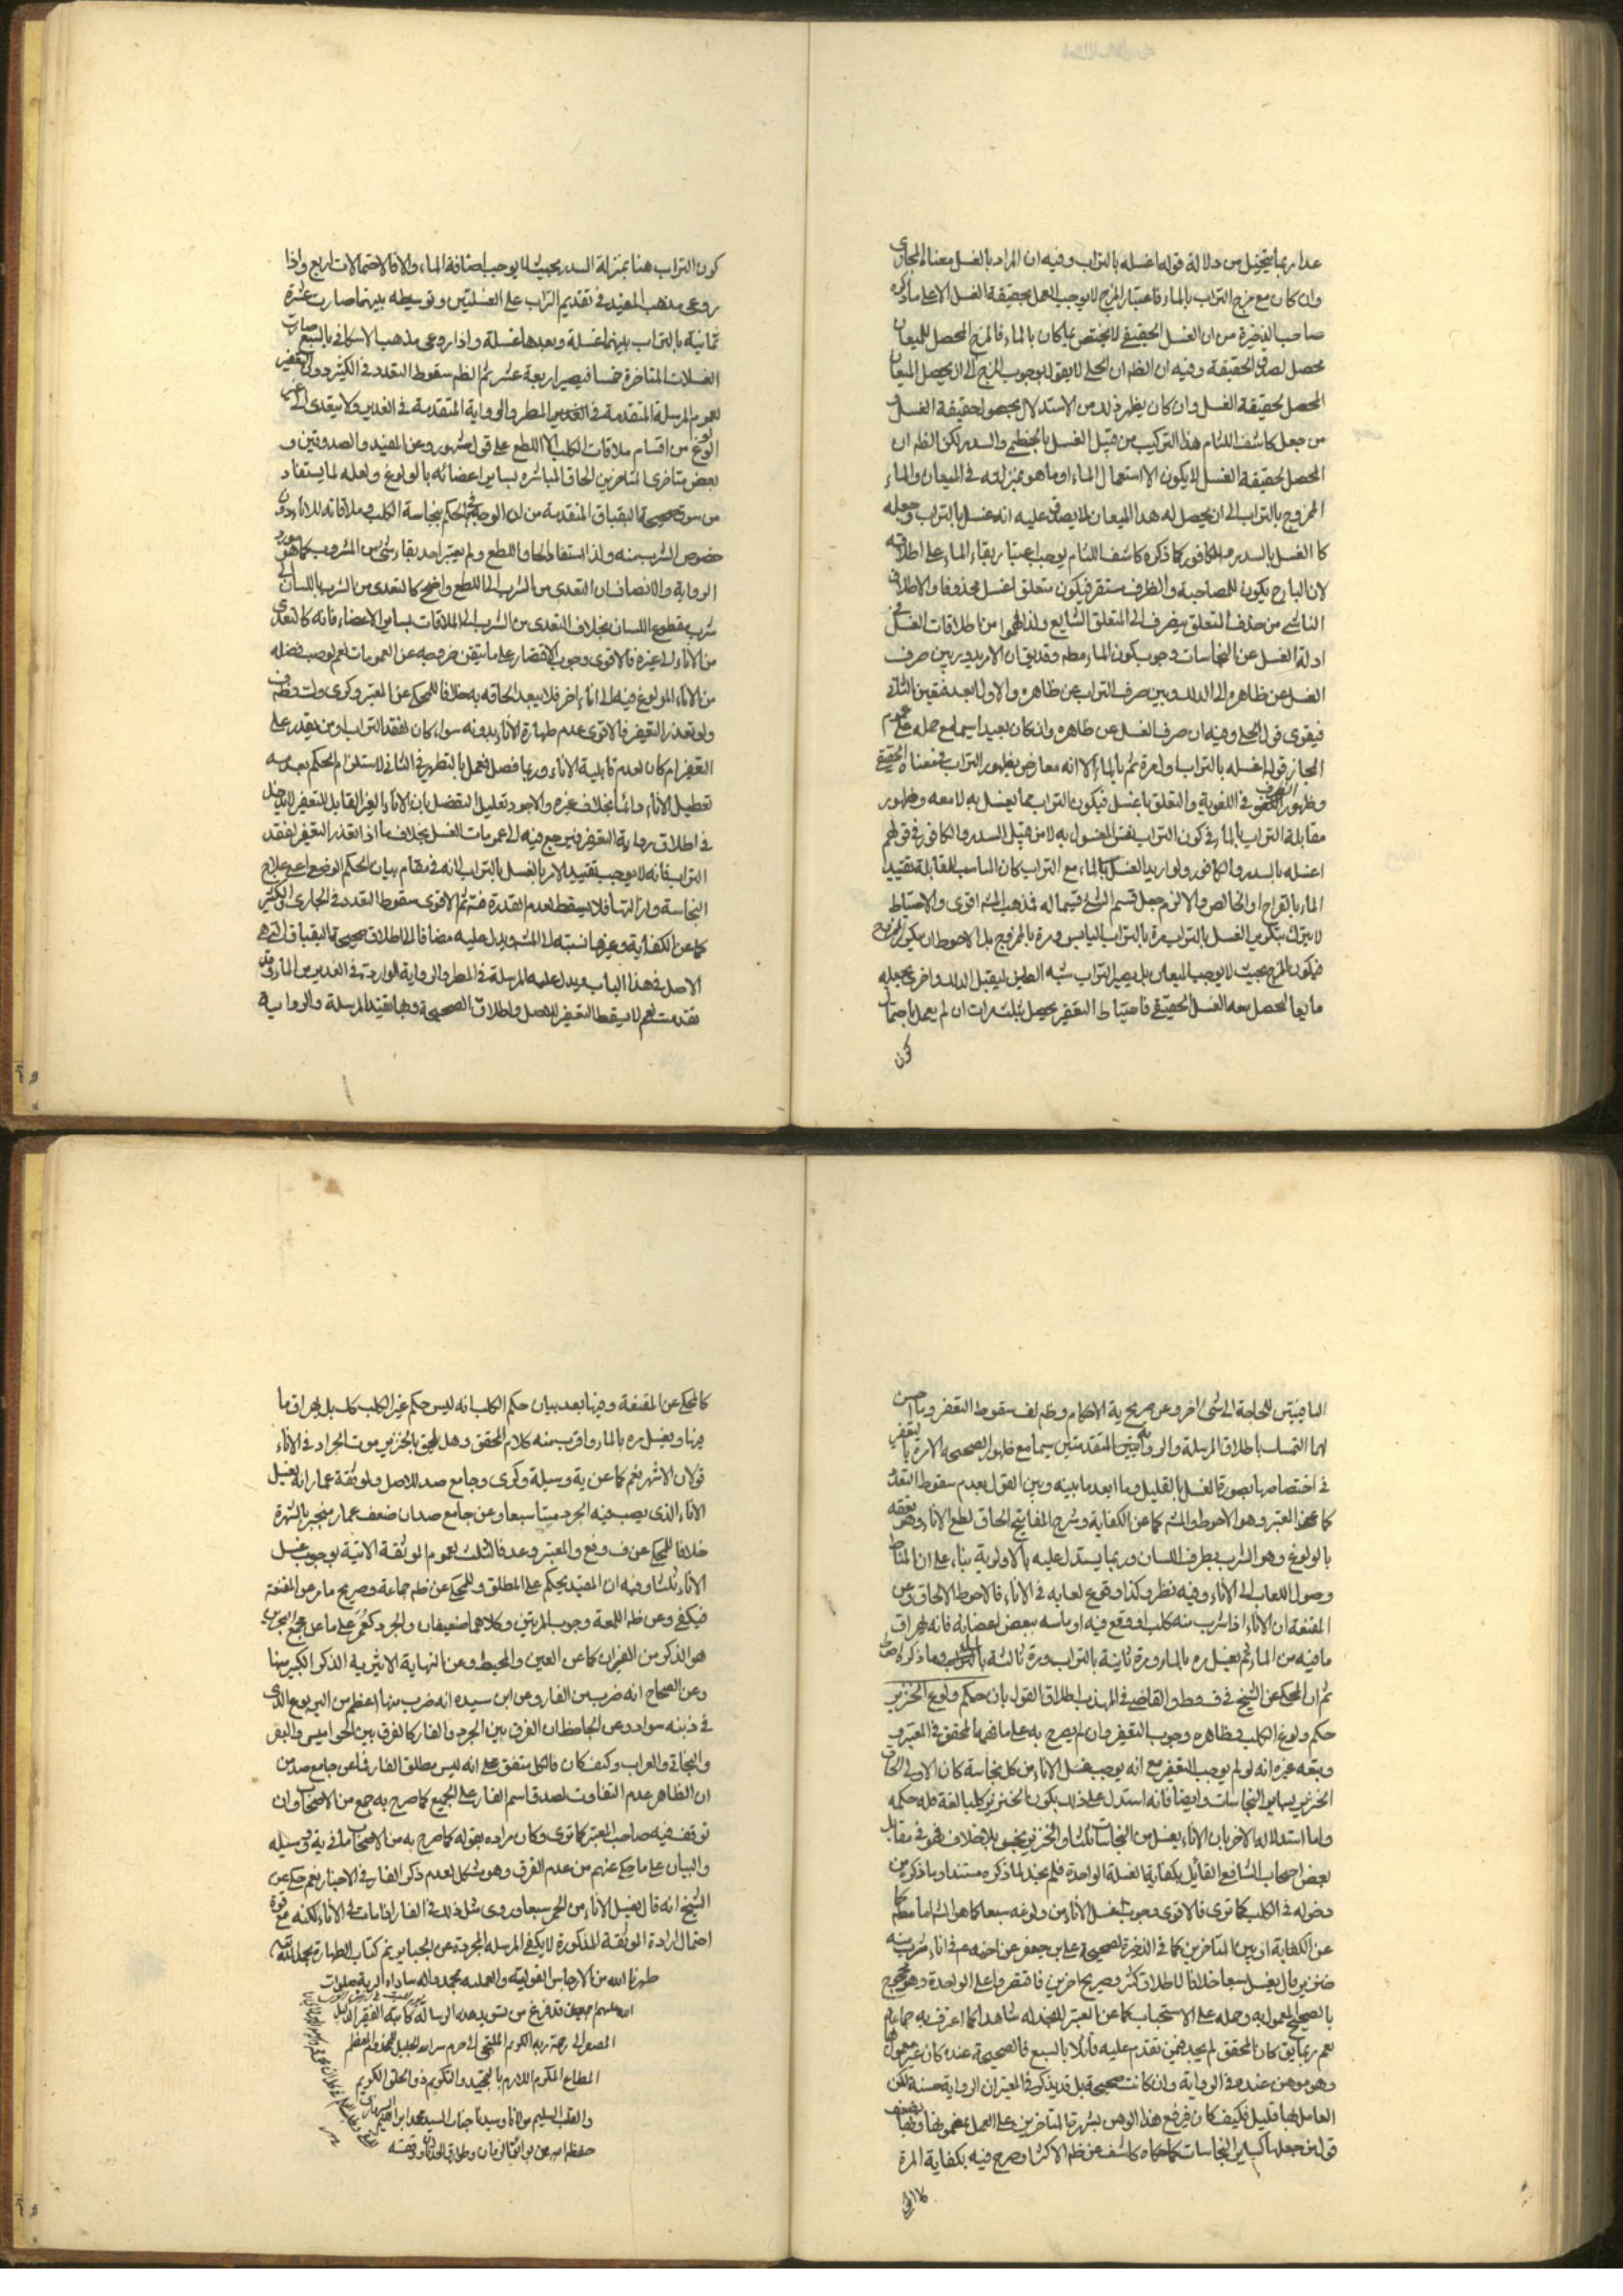 عدا ربما يتخيل من دلالة قوله اغسله بالتراب وفيه ان المراد بالغسل معناه المجازى
وان كان مع مزج التراب بالماء فاعتبار المزج لا يوجب العمل بحقيقة الغسل الا على ما ذكره
صاحب الذخيرة من ان الغسل الحقيقى لا يختص بما كان بالماء فالمزج المحصل للميعان
محصل لصدق الحقيقة وفيه ان الظم ان الحلى لا يقول بوجوب المزج الى ان يحصل الميعان
المحصل لحقيقة الغسل وان كان يظهر ذلك من الاستدلال بحصول حقيقة الغسل
من جعل كاشف اللثام هذا التركيب من قبيل الغسل بالخطمى والسدر لكن الظم ان
المحصل لحقيقة الغسل لا يكون الا استعمال الماء او ما هو بمنزلته فى الميعان والماء
الممزوج بالتراب الى ان يحصل له هذا الميعان لا يصدق عليه انه غسل بالتراب وجعله
كالغسل بالسدر والكافور كما ذكره كاشف اللثام يوجب اعتبار بقاء الماء على اطلاقه
لان الباء ح يكون للمصاحبة والظرف مستقر فيكون متعلق اغسل محذوفا والاطلاق
الناشى من حذف المتعلق ينصرف الى المتعلق الشايع ولذا فهموا من اطلاقات الغسل فى
ادلة الغسل عن النجاسات وجوب كون الماء مطم وقد يق ان الامر يدور بين صرف
الغسل عن ظاهره الى الدلك وبين صرف التراب عن ظاهره والاول ابعد فتعين الثانى
فيقوى قول الحلى وفيه ان صرف الغسل عن ظاهره وان كان بعيدا سيما مع حمله على عموم
المجاز قوله اغسله بالتراب اول مرة ثم بالماء الا انه معارض بظهور التراب فى معناه الحقيقى
وظهور الظرف فى اللغوية والتعلق باغسل فيكون التراب مما يغسل به لا معه وظهور
مقابلة التراب بالماء فى كون التراب نفس المغسول به لا من قبيل السدر والكافور فى قولهم
اغسله بالسدر والكافور ولو اريد الغسل بالماء مع التراب كان المناسب للمقابلة تقييد
الماء بالقراح او الخالص والا لزم جعل قسم الشئ قسيما له فمذهب المشه اقوى والاحتياط
لا يترك بتكرير الغسل بالتراب مرة بالتراب اليابس ومرة بالممزوج بل الاحوط ان يكرر الممزوج
فيكون المزج بحيث لا يوجب الميعان بل يصير التراب شبه الطين ليقبل الدلك واخرى بجعله
مايعا ليحصل معه الغسل الحقيقى فاحتياط التعفير يحصل بثلث مرات ان لم يعمل باحتمال
كون
كون التراب هنا بمنزلة السدر بحيث لا يوجب اضافة الماء والا فالاحتمالات اربع واذا
روعى مذهب المفيد فى تقديم التراب على الغسلتين وتوسيطه بينهما صارت عشرة
ثمانية بالتراب بينهما غسلة وبعدها غسلة واذا روعى مذهب الاسكافى بالسبع صارت
الغسلات المتاخرة خمسا فيصير اربعة عشر ثم الظم سقوط التعدد فى الكثير دون التعفير
لعموم المرسلة المتقدمة فى الغدير المطر والرواية المتقدمة فى الغدير ولا يتعدى الى غير
الولوغ من اقسام ملاقات الكلب الا اللطع على قول مشهور وعن المفيد والصدوقين و
بعض متاخرى المتاخرين الحاق المباشرة بساير اعضائه بالولوغ ولعله لما يستفاد
من سوق صحيحة البقباق المتقدمة من ان الوجه فى الحكم نجاسة الكلب فى ملاقاته للاناء دون
خصوص الشرب منه ولذا استفاد الحاق اللطع ولم يعتبر احد بقاء شئ من المشروب كما هو مورد
الرواية والانصاف ان التعدى من الشرب الى اللطع واضح كالتعدى من الشرب باللسان الى
شرب مقطوع اللسان بخلاف التعدى من الشرب الى الملاقات بساير الاعضاء فانه كالتعدى
من الاناء الى غيره فالاقوى وجوب الاقتصار على ما تيقن خروجه عن العمومات نعم لو صب فضله
من الاناء المولوغ فيه الى اناء اخر فلا يبعد الحاقه به خلافا للمحكى عن المعتبر وكرى
ولو تعذر التعفير فالاقوى عدم طهارة الاناء بدونه سواء كان لفقد التراب او من يقدر على
التعفير ام كان لعدم قابلية الاناء وربما فصل فعمل بالتطهير فى الثانى لاستلزام الحكم بعدمه
تعطيل الاناء دائما بخلاف غيره والاجود تعليل التفصيل بان الاناء الغير القابل للتعفير لا يدخل
فى اطلاق رواية التعفير فيرجع فيه الى عمومات الغسل بخلاف ما اذا تعذر التعفير لفقد
التراب فانه لا يوجب تقييد الامر بالغسل بالتراب لانه فى مقام بيان الحكم الوضعى اعنى علاج
النجاسة وازالتها فلا يسقط لعدم القدرة منه ثم الاقوى سقوط التعدد فى الجارى والكثير
كما عن الكفاية وغيرها نسبته الى المشه ويدل عليه مضافا الى اطلاق صحيحة البقباق التى هى
الاصل فى هذا الباب ويدل عليه المرسلة فى المطر والرواية الواردة فى الغدير من الماء وقد
تقدمت نعم لا يسقط التعفير للاصل واطلاق الصحيحة وبها يقيد المرسلة والرواية
الباقيتين للحاجة الى شئ اخر وعن صريح ية الاحكام وظم لف سقوط التعفير وما احسن
لهما التمسك باطلاق المرسلة والرواية المتقدمتين سيما مع ظهور الصحيحة الامرة بالتعفير
فى اختصاصها بصورة الغسل بالقليل وما ابعد ما بينه وبين القول بعدم سقوط التعدد
كما عن المعتبر وهو الاحوط والمشه كما عن الكفاية وشرح المفاتيح الحاق لطع الاناء
بالولوغ وهو الشرب بطرف اللسان وربما يستدل عليه بالاولوية بناء على ان المناط
وصول اللعاب الى الاناء وفيه نظر وكذا وقوع لعابه فى الاناء فالاحوط الالحاق وعن
المقنعة ان الاناء اذا شرب منه كلب او وقع فيه او ماسه ببعض اعضائه فانه يهراق
ما فيه من الماء ثم يغسل مرة بالماء ومرة ثانية بالتراب ومرة ثالثة بالماء وما ذكره احوط
ثم ان المحكى عن الشيخ فى ف وط والقاضى فى المهذب اطلاق القول بان حكم ولوغ الخنزير
حكم ولوغ الكلب وظاهره وجوب التعفير وان لم يصرح به على ما فهمه المحقق فى المعتبر و
تبعه غيره انه لو لم يوجب التعفير مع انه يوجب غسل الاناء من كل نجاسة كان الاولى الحاق
الخنزير بساير النجاسات وايضا فانه استدل على ذلك بكون الخنزير كلبا لغة فله حكمه
واما استدلاله الاخر بان الاناء يغسل من النجاسات ثلثا والخنزير نجس بلا خلاف فهو فى مقابل
بعض اصحاب الشافعى القائل بكفاية الغسلة الواحدة فلم نجد لما ذكره مستندا وما ذكره من
دخوله فى الكلب كما ترى فالاقوى وجوب غسل الاناء من ولوغه سبعا كما هو المشه اما مطم كما
عن الكفاية او بين المتاخرين كما فى الذخيرة لصحيحة على بن جعفر عن اخيه ع فى اناء شرب منه
خنزير قال يغسل سبعا خلافا لاطلاق كثير وصريح اخرين فاقتصروا على الواحدة وهو محجوج
بالصحيح المعمول به وحمله على الاستحباب كما عن المعتبر لم نجد له شاهدا كما اعترف به جماعة
نعم ربما يق كان المحقق لم يجد فيمن تقدم عليه قائلا بالسبع فالصحيحة عنده كان غير معمول بها
وهو موهن عنده فى الرواية وان كانت صحيحة بل قد يذكر فى المعتبر ان الرواية حسنة لكن
العامل بها قليل فكيف كان فيرفع هذا الوهن بشهرة المتاخرين على العمل بمضمونها
قولين جعلها كساير النجاسات كاشف عن ظم الاكثر وصرح فيه بكفاية المرة
كالمحكى عن المقنعة وفيها بعد بيان حكم الكلب انه ليس حكم غير الكلب كك بل يهراق ما
فيها ويغسل مرة بالماء واقرب منه كلام المحقق وهل يلحق بالخنزير موت الجراد فى الاناء
قولان الاشهر نعم كما عن ية وسيلة وكرى وجامع صد للاصل ولموثقة عمار انه يغسل
الاناء الذى يصب فيه الجرد ميتا سبعا وعن جامع صد ان ضعف عمار منجبر بالشهرة
خلافا للمحكى عن ف وفع والمعتبر وعد فالثلث لعموم الموثقة الاتية بوجوب غسل
الاناء ثلثا وفيه ان المقيد يحكم على المطلق وللمحكى عن ظم جماعة وصريح ما مر عن المقنعة
فيكفى وعن ظم اللمعة وجوب المرتين وكلاهما ضعيفان والجرد كعُمَر على ما عن مجمع البحرين
هو الذكر من الفيران كما عن العين والمحيط وعن النهاية الاثيرية الذكر الكبير منها
وعن الصحاح انه ضرب من الفار وعن ابن سيده انه ضرب منها اعظم من اليربوع الذى
فى ذنبه سواد وعن الجاحظ ان الفرق بين الجرد والفار كالفرق بين الجواميس والبقر
والبخاتى والعراب وكيف كان فالكل متفق على انه ليس مطلق الفار فما عن جامع صد من
ان الظاهر عدم التفاوت لصدق اسم الفار على الجميع كما صرح به جمع من الاصحاب وان
توقف فيه صاحب المعتبر كما ترى وكان مراده بقوله كما صرح به من الاصحاب ما فى ية وسيلة
والبيان على ما حكى عنهم من عدم الفرق وهو مشكل لعدم ذكر الفار فى الاخبار نعم حكى عن
الشيخ انه قال يغسل الاناء من الخمر سبعا وروى مثل ذلك فى الفار اذا مات فى الاناء لكنه مع قوة
احتمال ارادة الموثقة المذكورة لا يكفى المرسلة المجردة عن الجابر تم كتاب الطهارة بحمد الله
طهرنا الله من الارجاس القولية والعملية بمحمد واله سادات البرية صلوات
الله عليهم اجمعين قد فرغ من تسويد هذه الرسالة كاتبه الفقير الذليل
رحمة ربه الكريم الملتجى الى حرم
المطاع المكرم اللازم بالتمجيد والتكريم ذو الخلق الكريم
والقلب السليم مولانا وسيدنا جناب السيد محمد ابراهيم
حفظه الله عن بوائق الزمان وطوارق الحدثان